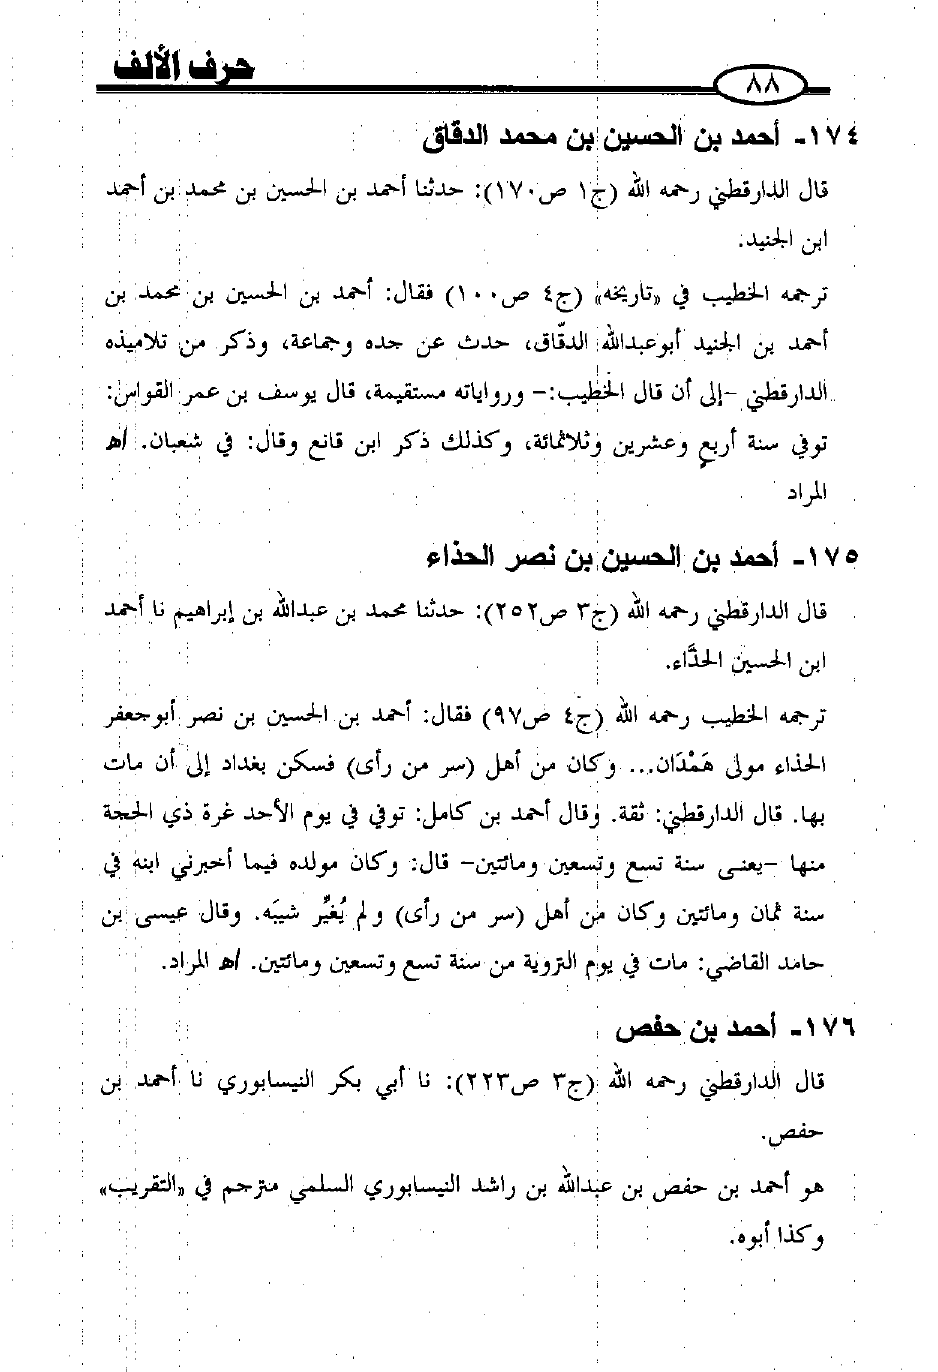 حرف الألف
٨٨
١٧٤- أحمد بن الحسين بن محمد الدقاق
قال الدارقطني رحمه الله (ج١ ص١٧٠): حدثنا أحمد بن الحسين بن محمد بن أحمد
ابن الجنيد.
ترجمه الخطيب في «تاريخه» (ج٤ ص١٠٠) فقال: أحمد بن الحسين بن محمد بن
أحمد بن الجنيد أبوعبدالله الدقّاق، حدث عن جده وجماعة، وذكر من تلاميذه
الدارقطني -إلى أن قال الخطيب:- ورواياته مستقيمة، قال يوسف بن عمر القواس:
توفي سنة أربعٍ وعشرين وثلاثمائة، وكذلك ذكر ابن قانع وقال: في شعبان. اﻫ
المراد
١٧٥- أحمد بن الحسين بن نصر الحذاء
قال الدارقطني رحمه الله (ج٣ ص٢٥٢): حدثنا محمد بن عبدالله بن إبراهيم نا أحمد
ابن الحسين الحذَّاء.
ترجمه الخطيب رحمه الله (ج٤ ص٩٧) فقال: أحمد بن الحسين بن نصر أبوجعفر
الحذاء مولى هَمْدَان... وكان من أهل (سر من رأى) فسكن بغداد إلى أن مات
بها. قال الدارقطني: ثقة. وقال أحمد بن كامل: توفي في يوم الأحد غرة ذي الحجة
منها -يعنى سنة تسع وتسعين ومائتين- قال: وكان مولده فيما أخبرني ابنه في
سنة ثمان ومائتين وكان من أهل (سر من رأى) ولم يُغيِّر شيبَه. وقال عيسى بن
حامد القاضي: مات في يوم التروية من سنة تسع وتسعين ومائتين. اﻫ المراد.
١٧٦- أحمد بن حفص
قال الدارقطني رحمه الله (ج٣ ص٢٢٣): نا أبي بكر النيسابوري نا أحمد بن
حفص.
هو أحمد بن حفص بن عبدالله بن راشد النيسابوري السلمي مترجم في «التقريب»
وكذا أبوه.